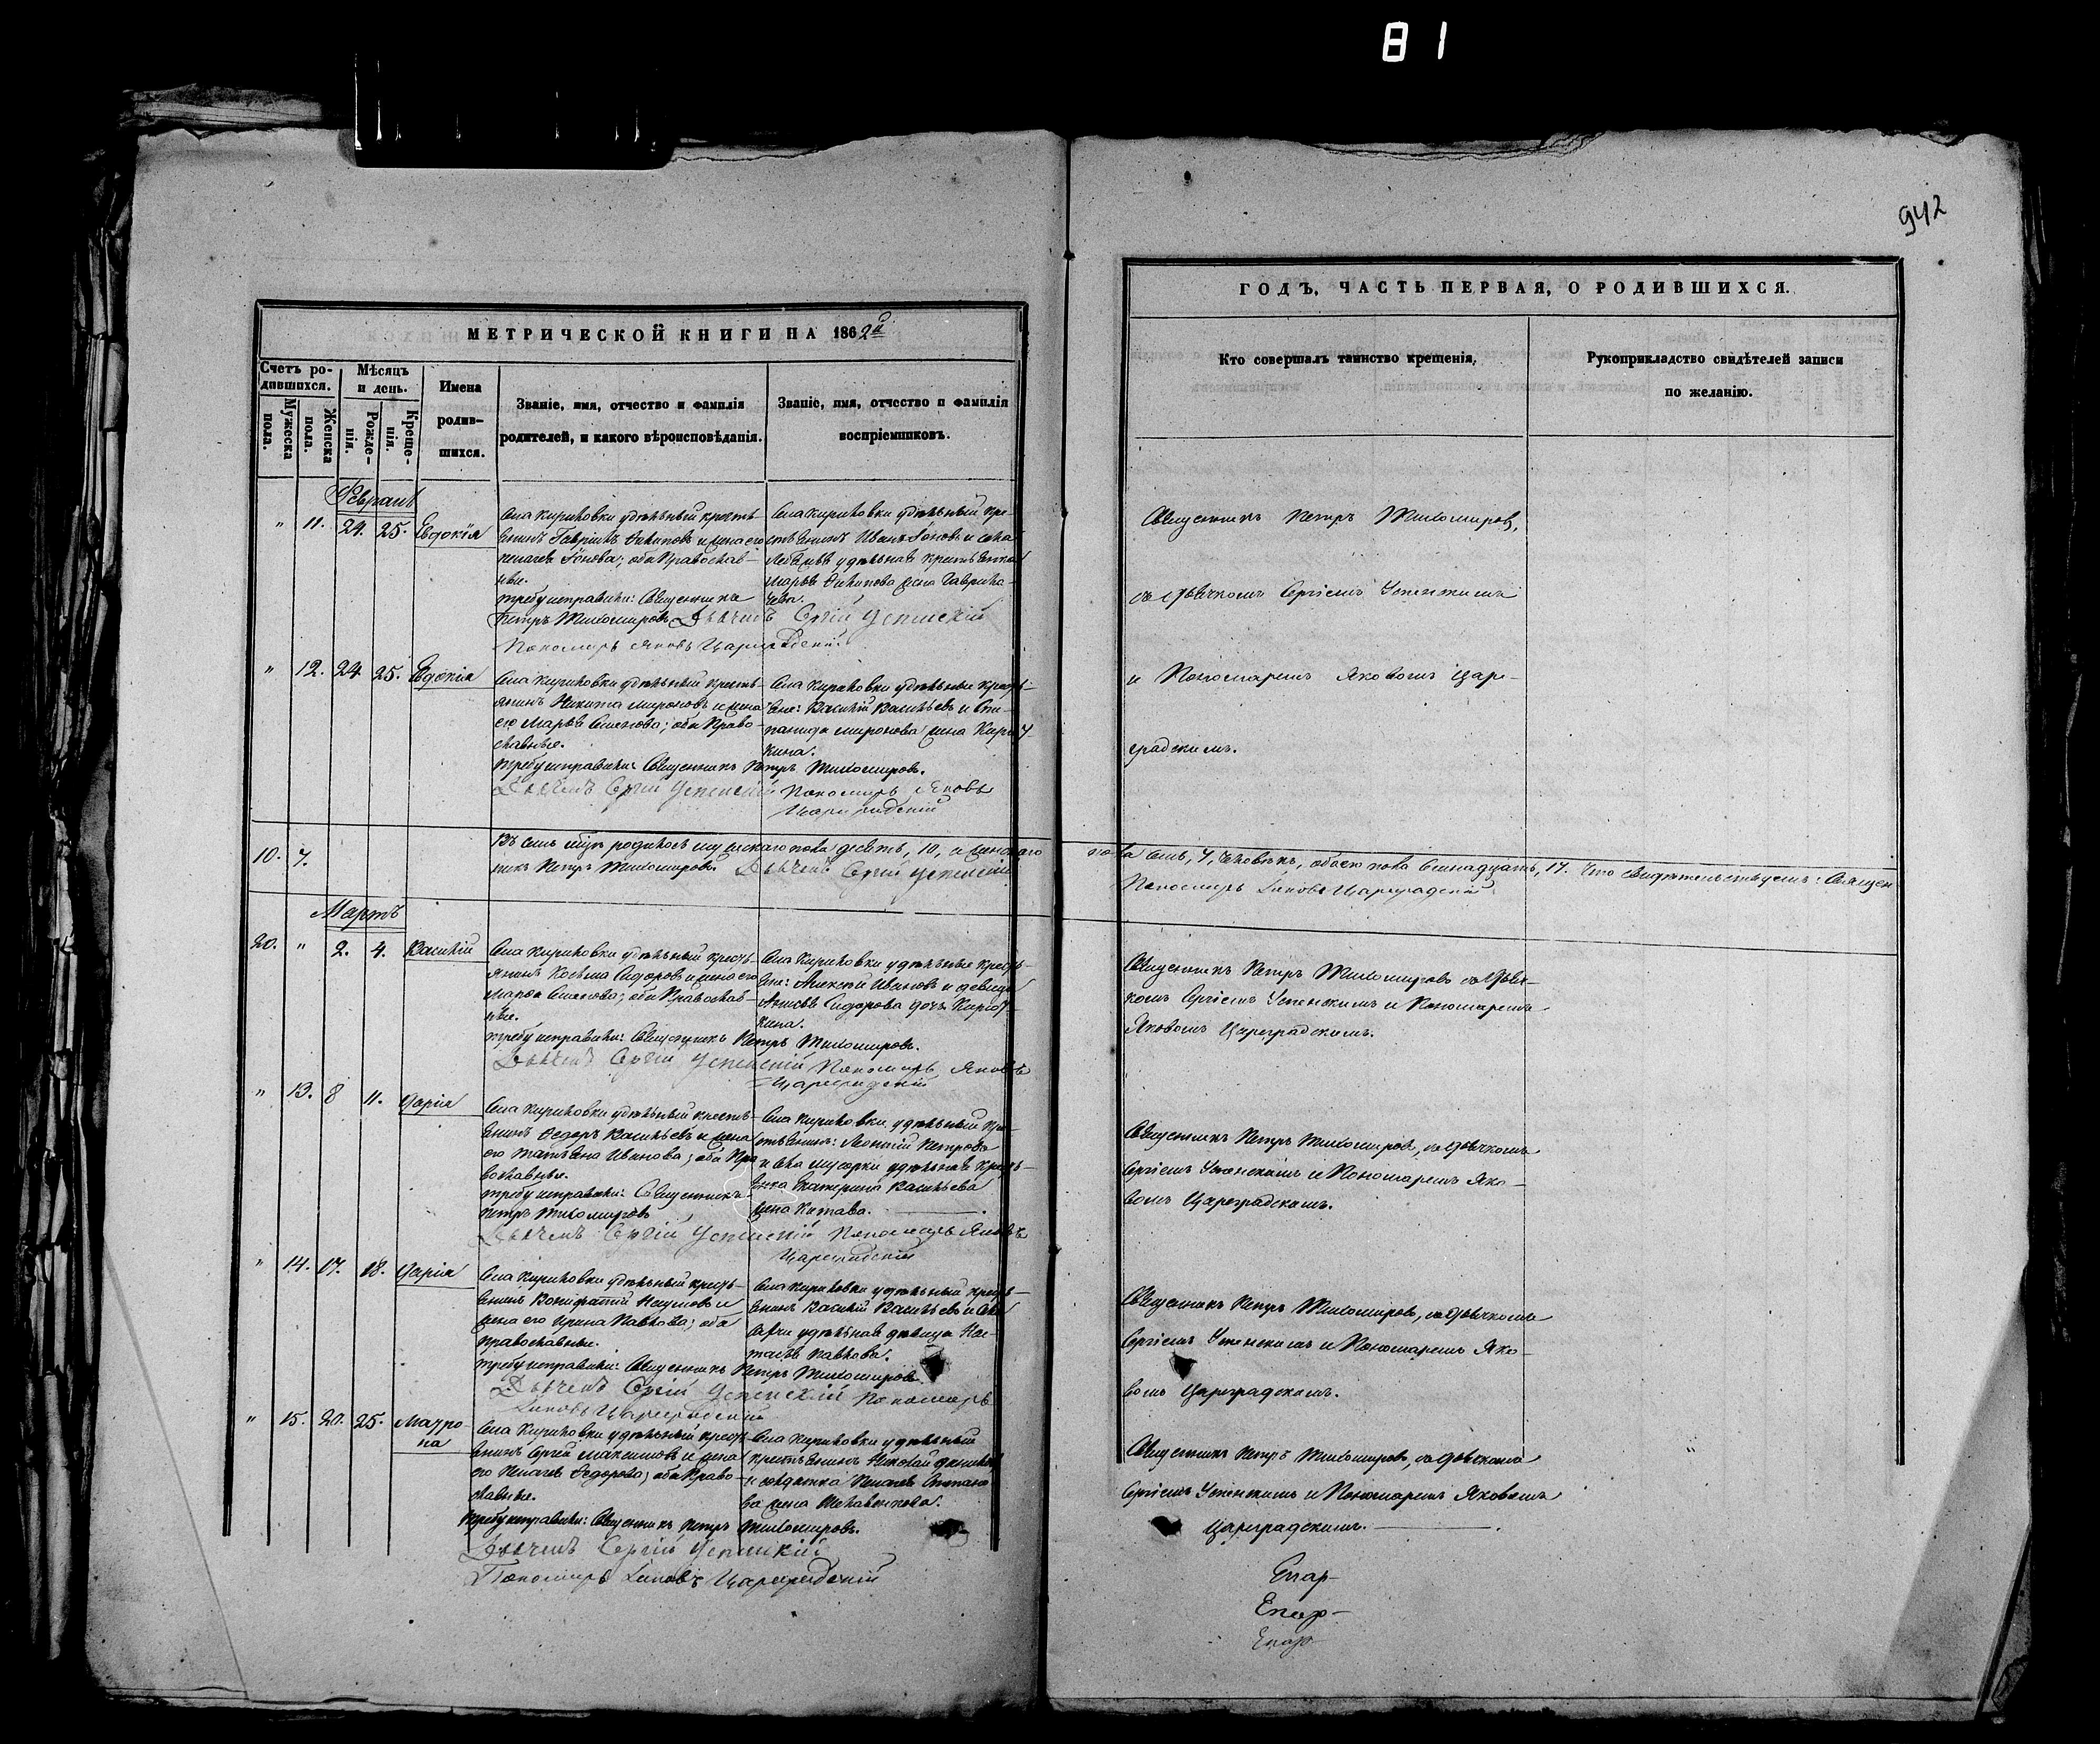 81
942
МЕТРИЧЕСКОЙ КНИГИ НА 1862й
ГОДЪ, ЧАСТЬ ПЕРВАЯ, О РОДИВШИХСЯ.
Счетъ ро-
дившихся.
Мужеска
пола.
Женска
пола.
Мѣсяцъ
и день.
Рожде-
нія.
Креще-
нія.
Имена
родив-
шихся.
Званіе, имя, отчество и фамилія
родителей, и какого вѣроисповѣданія.
Званіе, имя, отчество и фамилія
воспріемниковъ.
Кто совершалъ таинство крещенія,
Рукоприкладство свидѣтелей записи
по желанію.
Февраль
" 11. 24. 25. Евдокія
Села Кириловки удѣльный кресть-
янинъ Гавріилъ Филиповъ и жена его
Пелагея Іонова; оба Православ-
ные.
Требу исправили: Священникъ
Петръ Тихомировъ Дьячекъ Сергій Успенскій
Пономарь Яковъ Цареградскій
Села Кириловки удѣльный кре-
стьянинъ Иванъ Іоновъ и села
удѣльная крестьянка
Марья Филипова жена Гаврила-
чева.
Священникъ Петръ Тихомировъ,
съ дьячкомъ Сергіемъ Успенскимъ
и Пономаремъ Яковомъ Царе-
градскимъ.
" 12. 24. 25. Евдокія
Села Кириловки удѣльный кресть-
янинъ Никита Мироновъ и жена
его Марья Семенова; оба Право-
славные.
Требу исправили: Священникъ Петръ Тихомировъ.
Дьячекъ Сергій Успенскій Пономарь Яковъ
Цареградскій
Села Кириловки удѣльные кресть-
яне: Василій Васильевъ и Сте-
панида Миронова жена
кина.
10. 7. Въ семъ м-цѣ родилось мужескаго пола десять, 10, и женскаго пола семь, 7, человѣкъ, обоего пола семнадцать, 17. Что свидѣтельствуемъ: Священ
никъ Петръ Тихомировъ. Дьячекъ Сергій Успенскій Пономарь Яковъ Цареградскій
Мартъ
20. " 2. 4. Василій
Села Кириловки удѣльный кресть-
янинъ Косьма Сидоровъ и жена его
Марѳа Семенова; оба Православ-
ные.
Требу исправили: Священникъ Петръ Тихомировъ.
Дьячекъ Сергій Успенскій Пономарь Яковъ
Цареградскій
Села Кириловки удѣльные кресть-
яне: Алексѣй Ивановъ и девица
Анисья Сидорова дочь
кина.
Священникъ Петръ Тихомировъ съ дьяч-
комъ Сергіемъ Успенскимъ и Пономаремъ
Яковомъ Цареградскимъ.
" 13. 8 11. Дарія
Села Кириловки удѣльный кресть-
янинъ Ѳедоръ Васильевъ и жена
его Татьяна Иванова; оба Пра
вославные.
Требу исправили: Священникъ
Петръ Тихомировъ
Дьячекъ Сергій Успенскій Пономарь Яковъ
Цареградскій
Села Кириловки удѣльный кре-
стьянинъ: Леонтій Петровъ
и села Мусорки удѣльная кресть-
янка Екатерина Васильева
жена Китава.
Священникъ Петръ Тихомировъ, съ дьячкомъ
Сергіемъ Успенскимъ и Пономаремъ Яко-
вомъ Цареградскимъ.
" 14. 17. 18. Дарія
Села Кириловки удѣльный кресть-
янинъ Вонифатій Наумовъ и
жена его Ирина Павлова; оба
Православные.
Требу исправили: Священникъ Петръ Тихомировъ
Дьячекъ Сергій Успенскій Пономарь
Яковъ Цареградскій
Села Кириловки удѣльный кресть-
янинъ Василій Васильевъ и
удѣльная дѣвица Нас-
тасья Павлова.
Священникъ Петръ Тихомировъ, съ дьячкомъ
Сергіемъ Успенскимъ и Пономаремъ Яко-
вомъ Цареградскимъ.
" 15. 20. 25. Матро-
на
Села Кириловки удѣльный кресть-
янинъ Сергій Максимовъ и жена
его Пелагея Ѳедорова; оба Право-
славные.
Требу исправили: Священникъ Петръ Тихомировъ.
Дьячекъ Сергій Успенскій
Пономарь Яковъ Цареградскій
Села Кириловки удѣльный
крестьянинъ Николай
и солдатка Пелагея Степано
ва жена
Священникъ Петръ Тихомировъ, съ дьячкомъ
Сергіемъ Успенскимъ и Пономаремъ Яковомъ
Цареградскимъ.
Епар-
Епар-
Епар-